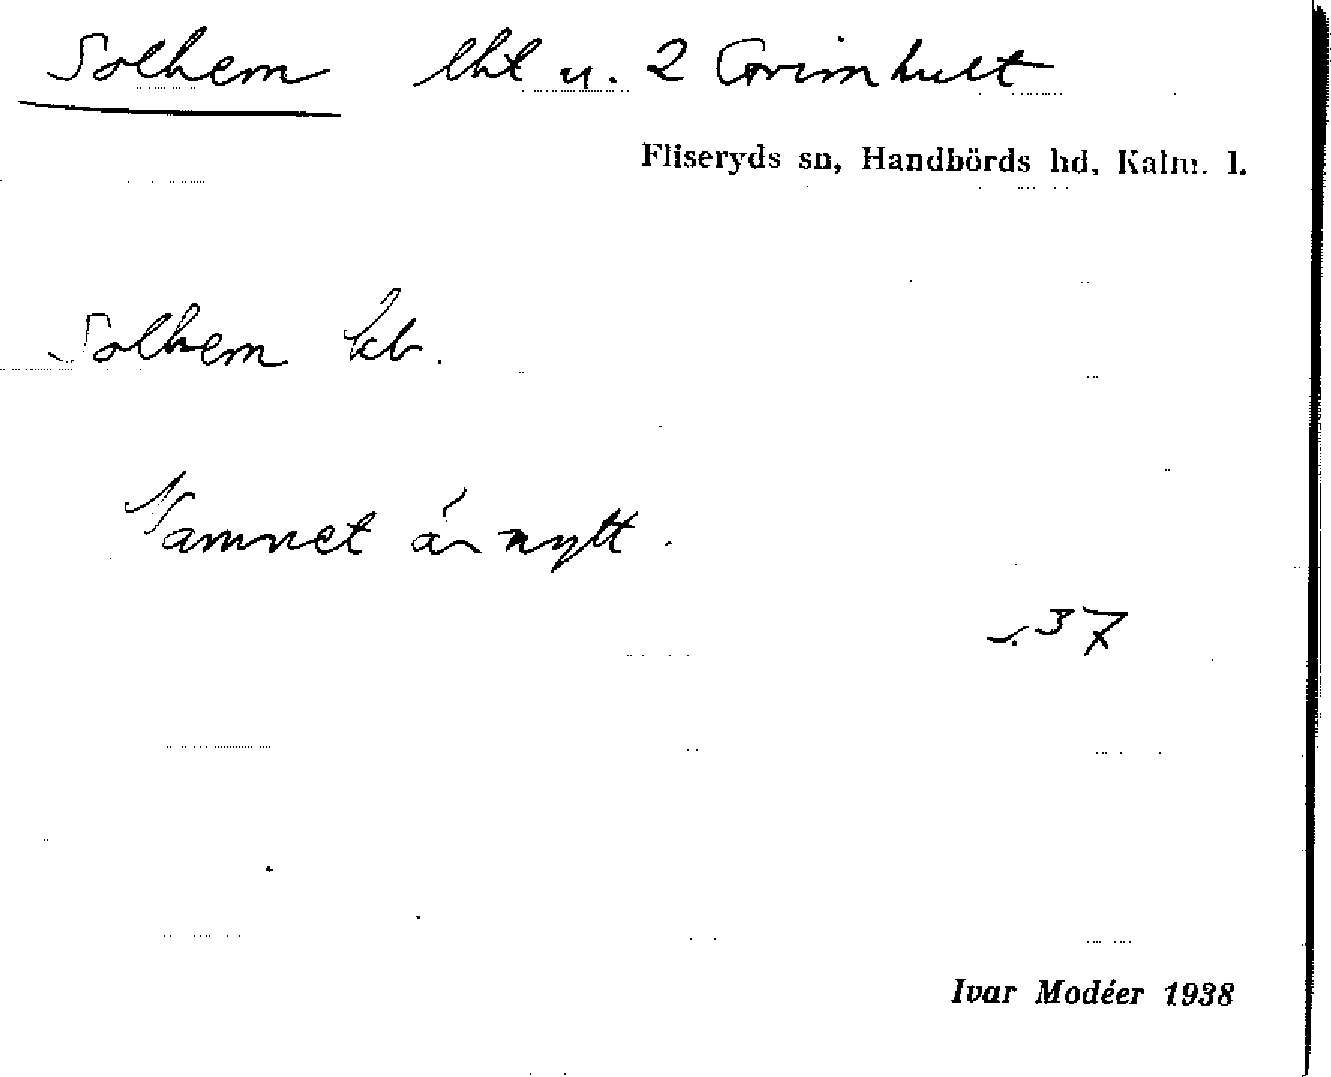 Solhem lht u. 2 Grimhult
Fliseryds sn, Handbörds hd, Kalm. l.
Solhem kb.
Namnet är nytt.
s. 37
Ivar Modéer 1938